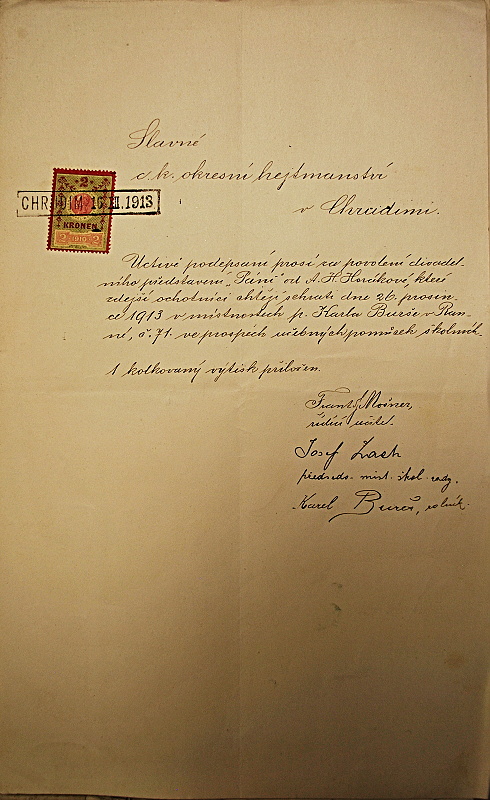 Slavné
c. k. okresní hejtmanství
v Chrudimi.
2
CHRUDIM 1913
KRONEN
2 1910 2
Uctivě podepsaní prosí za povolení divadel-
ního představení „Páni" od A. H. Horákové, které
zdejší ochotníci chtějí sehrati dne 26. prosin-
ce 1913 v místnostech p. Karla Bureše v Ran-
né, č. 71. ve prospěch učebných pomůcek školních.
1 kolkovaný výtisk přiložen.
Frant.
řídící učitel.
Josef Zach
předseda míst. škol. rady.
Karel Bureš, rolník.